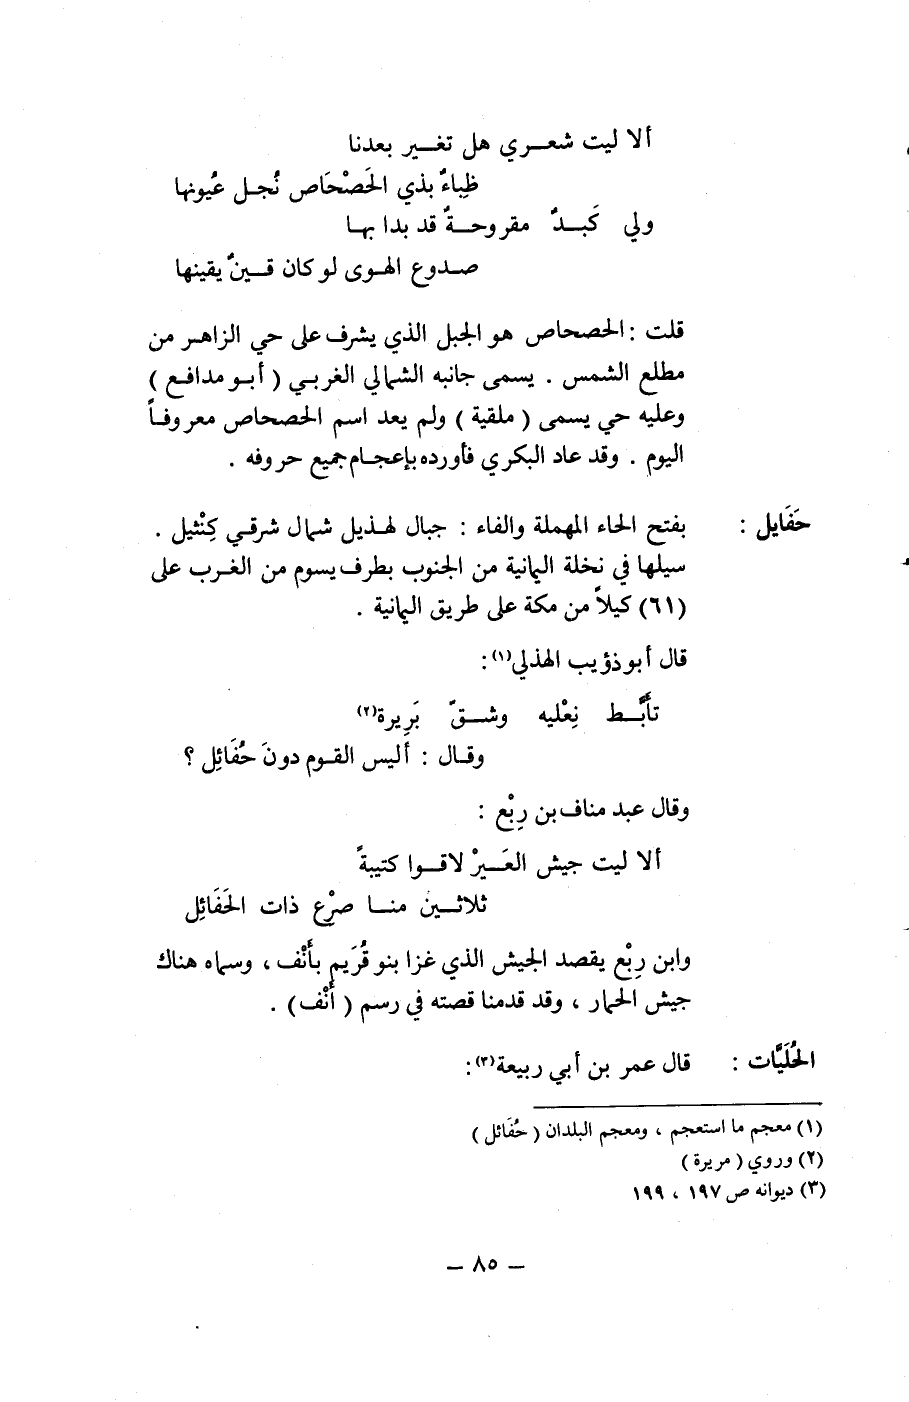 ألا ليت شعري هل تغير بعدنا
ظِباءٌ بذي الحَصْحَاص نُجل عيُونها
ولي كَبدٌ مقروحةٌ قد بدا بها
صدوع الهوى لو كان قينٌ يقينها
قلت : الحصحاص هو الجبل الذي يشرف على حي الزاهر من
مطلع الشمس . يسمى جانبه الشمالي الغربي ( أبو مدافع )
وعليه حي يسمى ( ملقية ) ولم يعد اسم الحصحاص معروفاً
اليوم . وقد عاد البكري فأورده بإعجام جميع حروفه .
حَفَايل : بفتح الحاء المهملة والفاء : جبال لهذيل شمال شرقي كِنْثيل .
سيلها في نخلة اليمانية من الجنوب بطرف يسوم من الغرب على
(٦١) كيلاً من مكة على طريق اليمانية .
قال أبو ذؤيب الهذلي(١) :
تأَبَّط نِعْليه وشقّ بَرِيرة(٢)
وقال : أليس القوم دونَ حُفَائل ؟
وقال عبد مناف بن رِبْع :
ألا ليت جيش العَيرْ لاقوا كتيبةً
ثلاثين منا صرْع ذات الحَفَائِل
وابن رِبْع يقصد الجيش الذي غزا بنو قُرَيم بأَنْف ، وسماه هناك
جيش الحمار ، وقد قدمنا قصته في رسم ( أَنْف ) .
الحُلَيَّات : قال عمر بن أبي ربيعة(٣) :
(١) معجم ما استعجم ، ومعجم البلدان ( حُفَائل )
(٢) وروي ( مريرة )
(٣) ديوانه ص ١٩٧ ، ١٩٩
– ٨٥ –